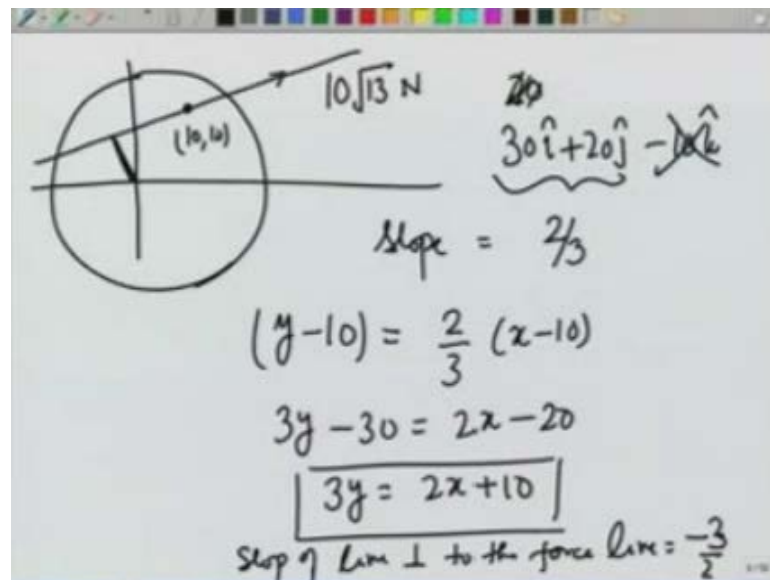 10√13 N
(10,10)
30î+20ĵ
slope = 2/3
(y-10) = 2/3 (x-10)
3y-30 = 2x-20
3y = 2x+10
Slop of line ⊥ to the force line = -3/2